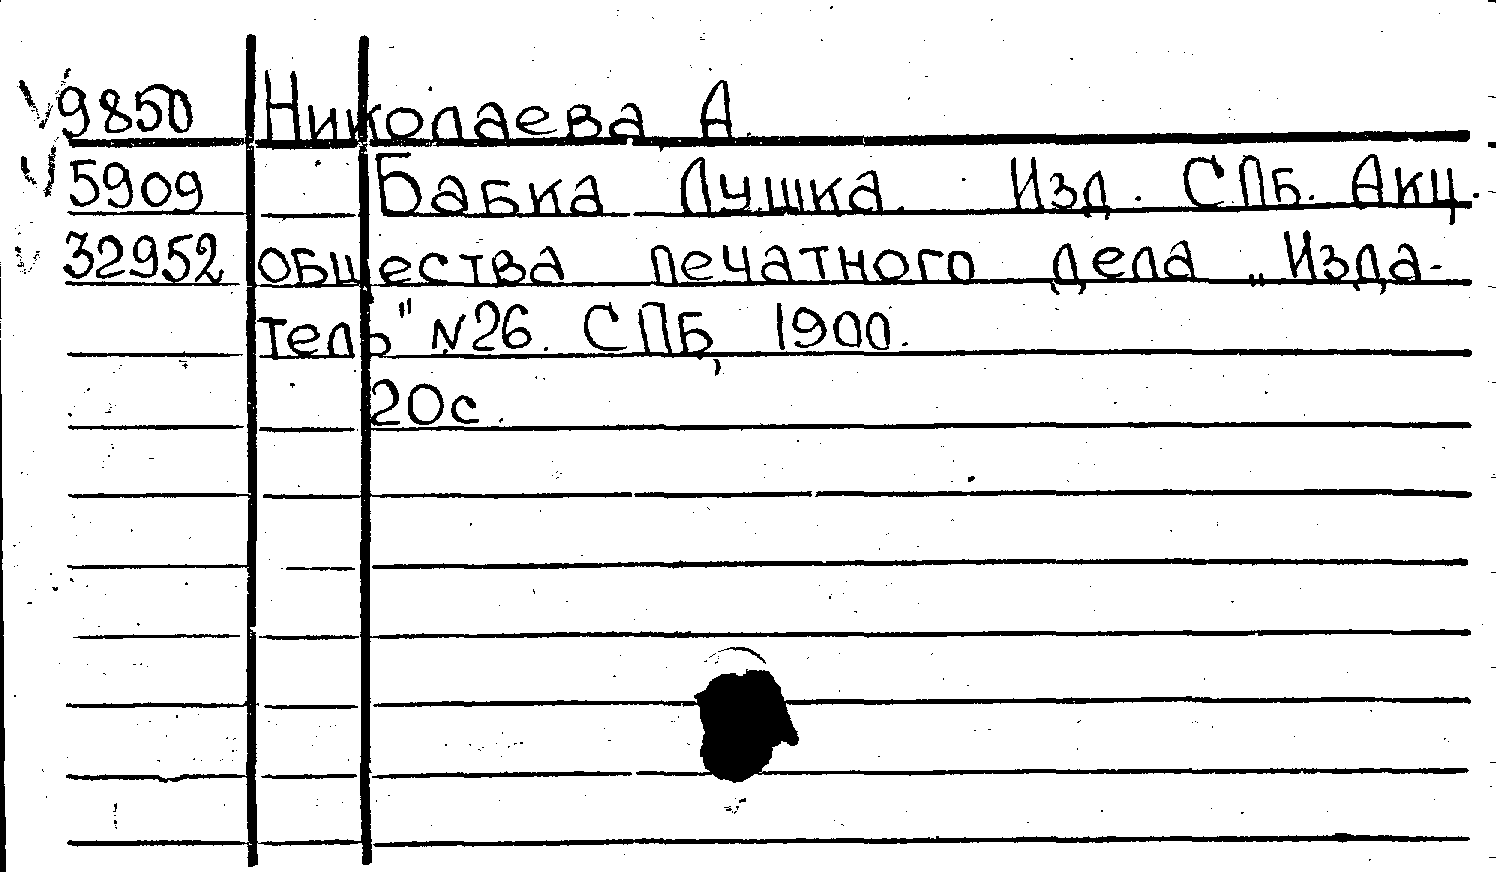 9850 Николаева А.
5909 Бабка Лушка. Изд. СПб. Акц.
32952 общества печатного дела „Изда-
тель" №26. СПБ, 1900.
20с.